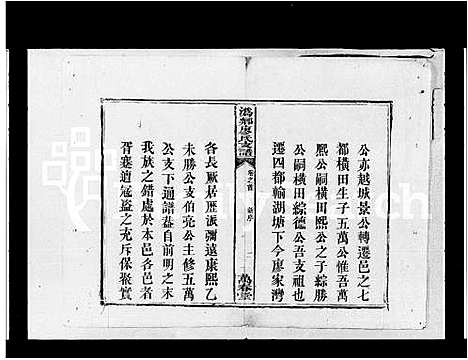 公亦越城景公轉遷邑之七
都橫田生子五萬公惟吾萬
熙公嗣橫田熙公之子綜勝
公嗣橫田綜德公吾支祖也
遷四都輸湖塘下今廖家灣
溈邦廖氏支譜
卷之首
萬春堂
各長厥居歷派彌遠康熙乙
未勝公支伯亮公主修五萬
公支下通譜蓋自前明之末
我族之錯處於本邑各邑者
胥蹇遒寇盜之充斥保聚實